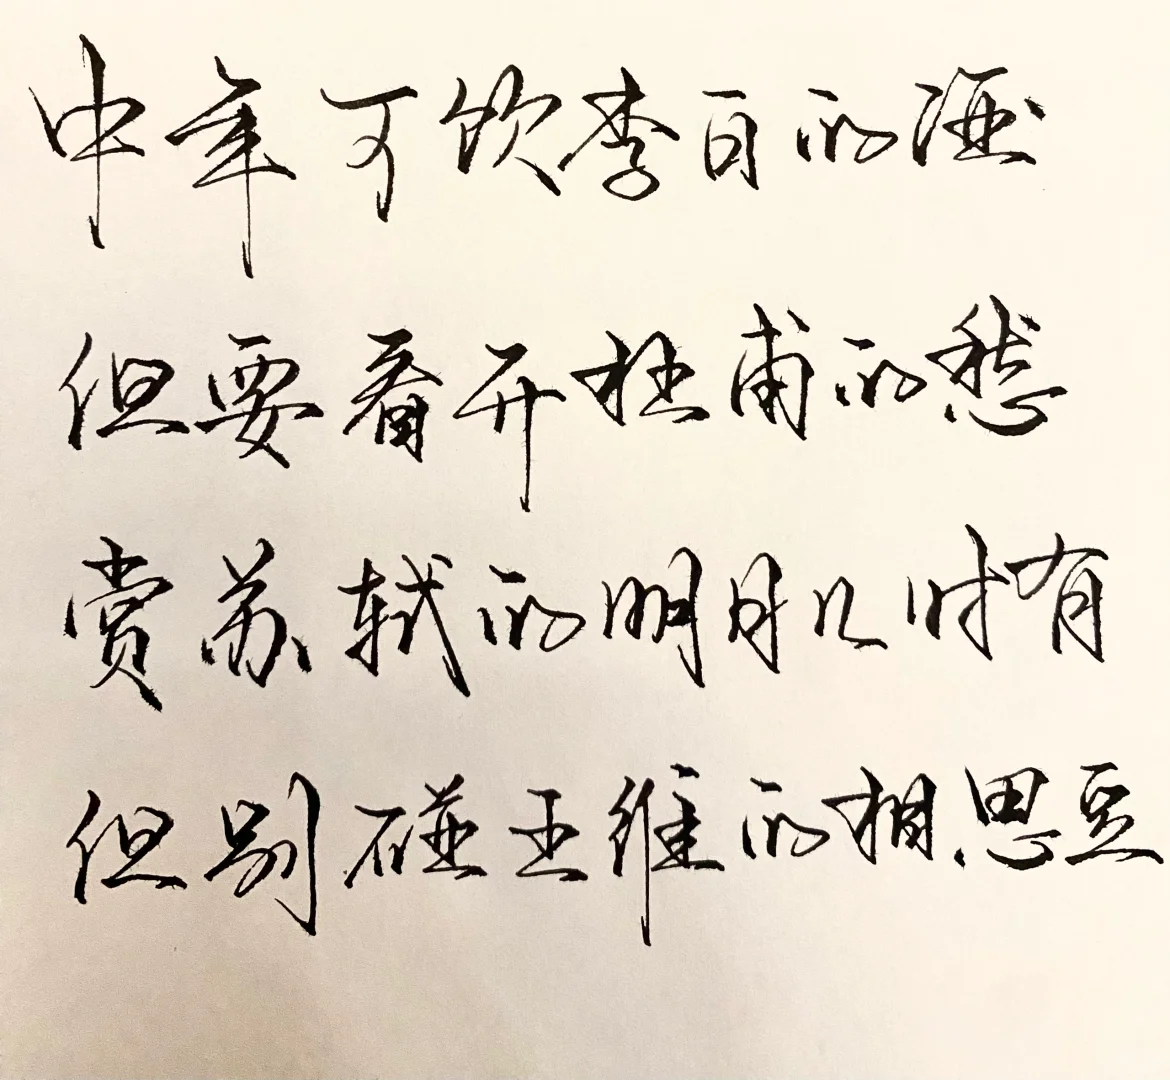 中年可饮李白的酒
但要看开杜甫的愁
赏苏轼的明月几时有
但别碰王维的相思豆